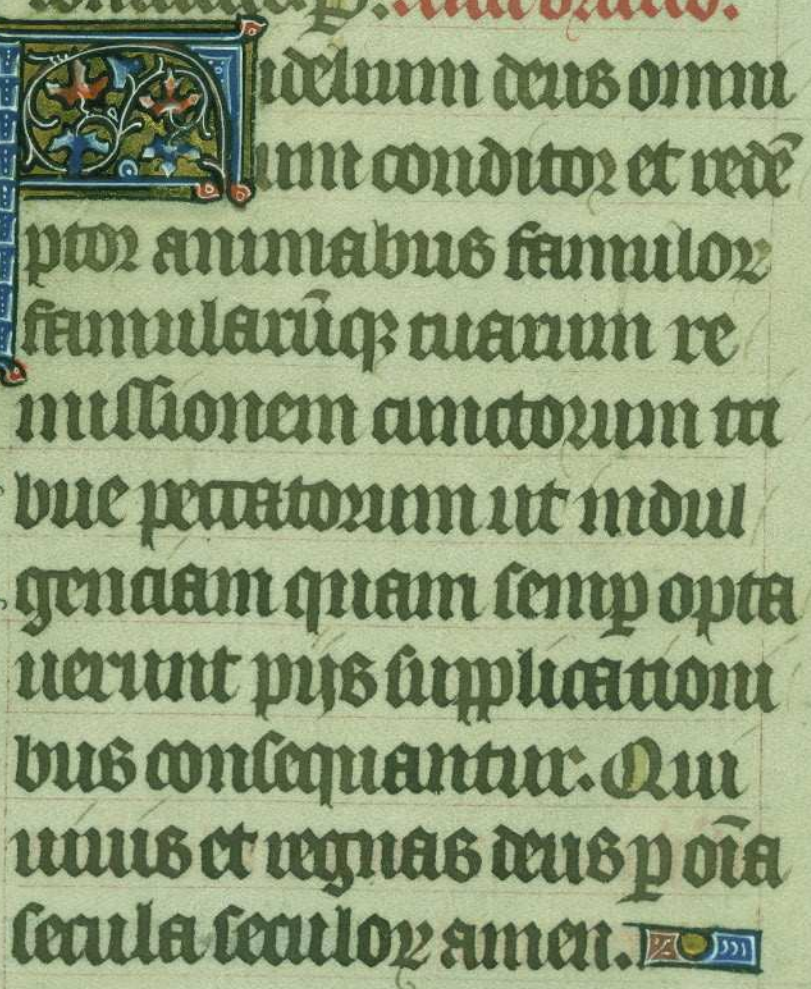 Alia oratio.
Fidelium deus omni
um conditor et redē
ptor animabus famuloꝝ
famularūqꝫ tuarum re
missionem cunctorum tri
bue peccatorum ut indul
genciam quam semꝑ opta
uerunt pijs supplicationi
bus consequantur. Qui
uiuis et regnas deus ꝑ oīa
secula seculoꝝ amen.